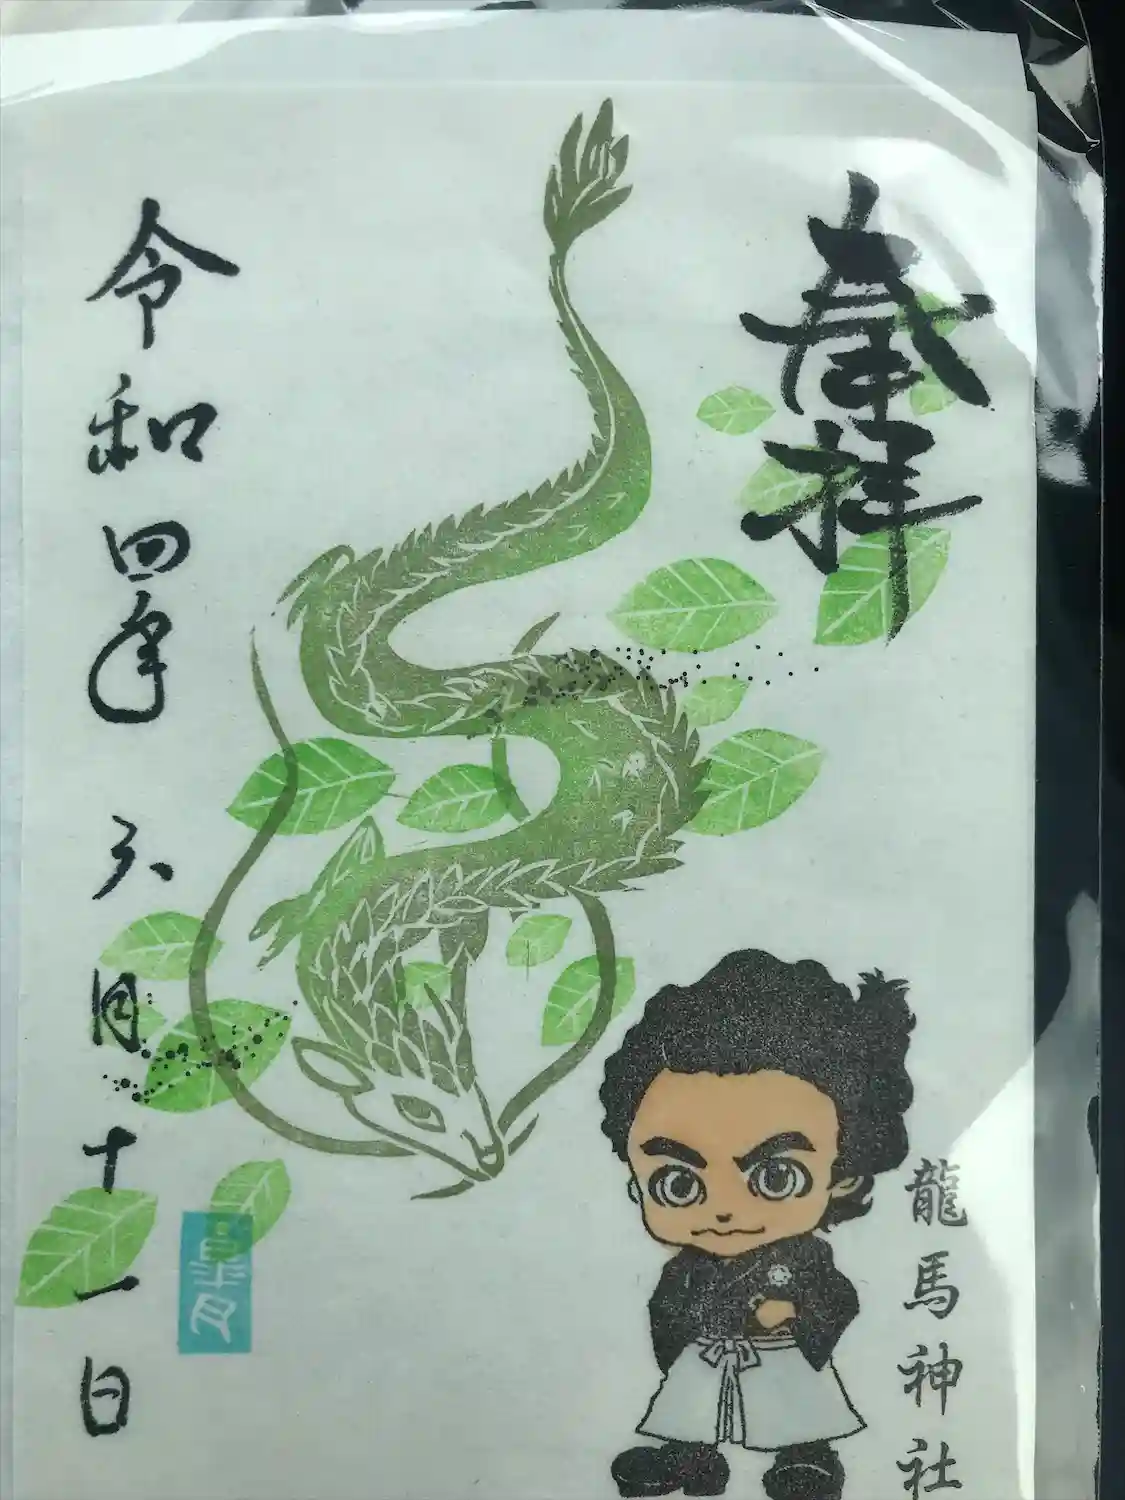 奉拝
龍馬神社
令和四年 六月十一日